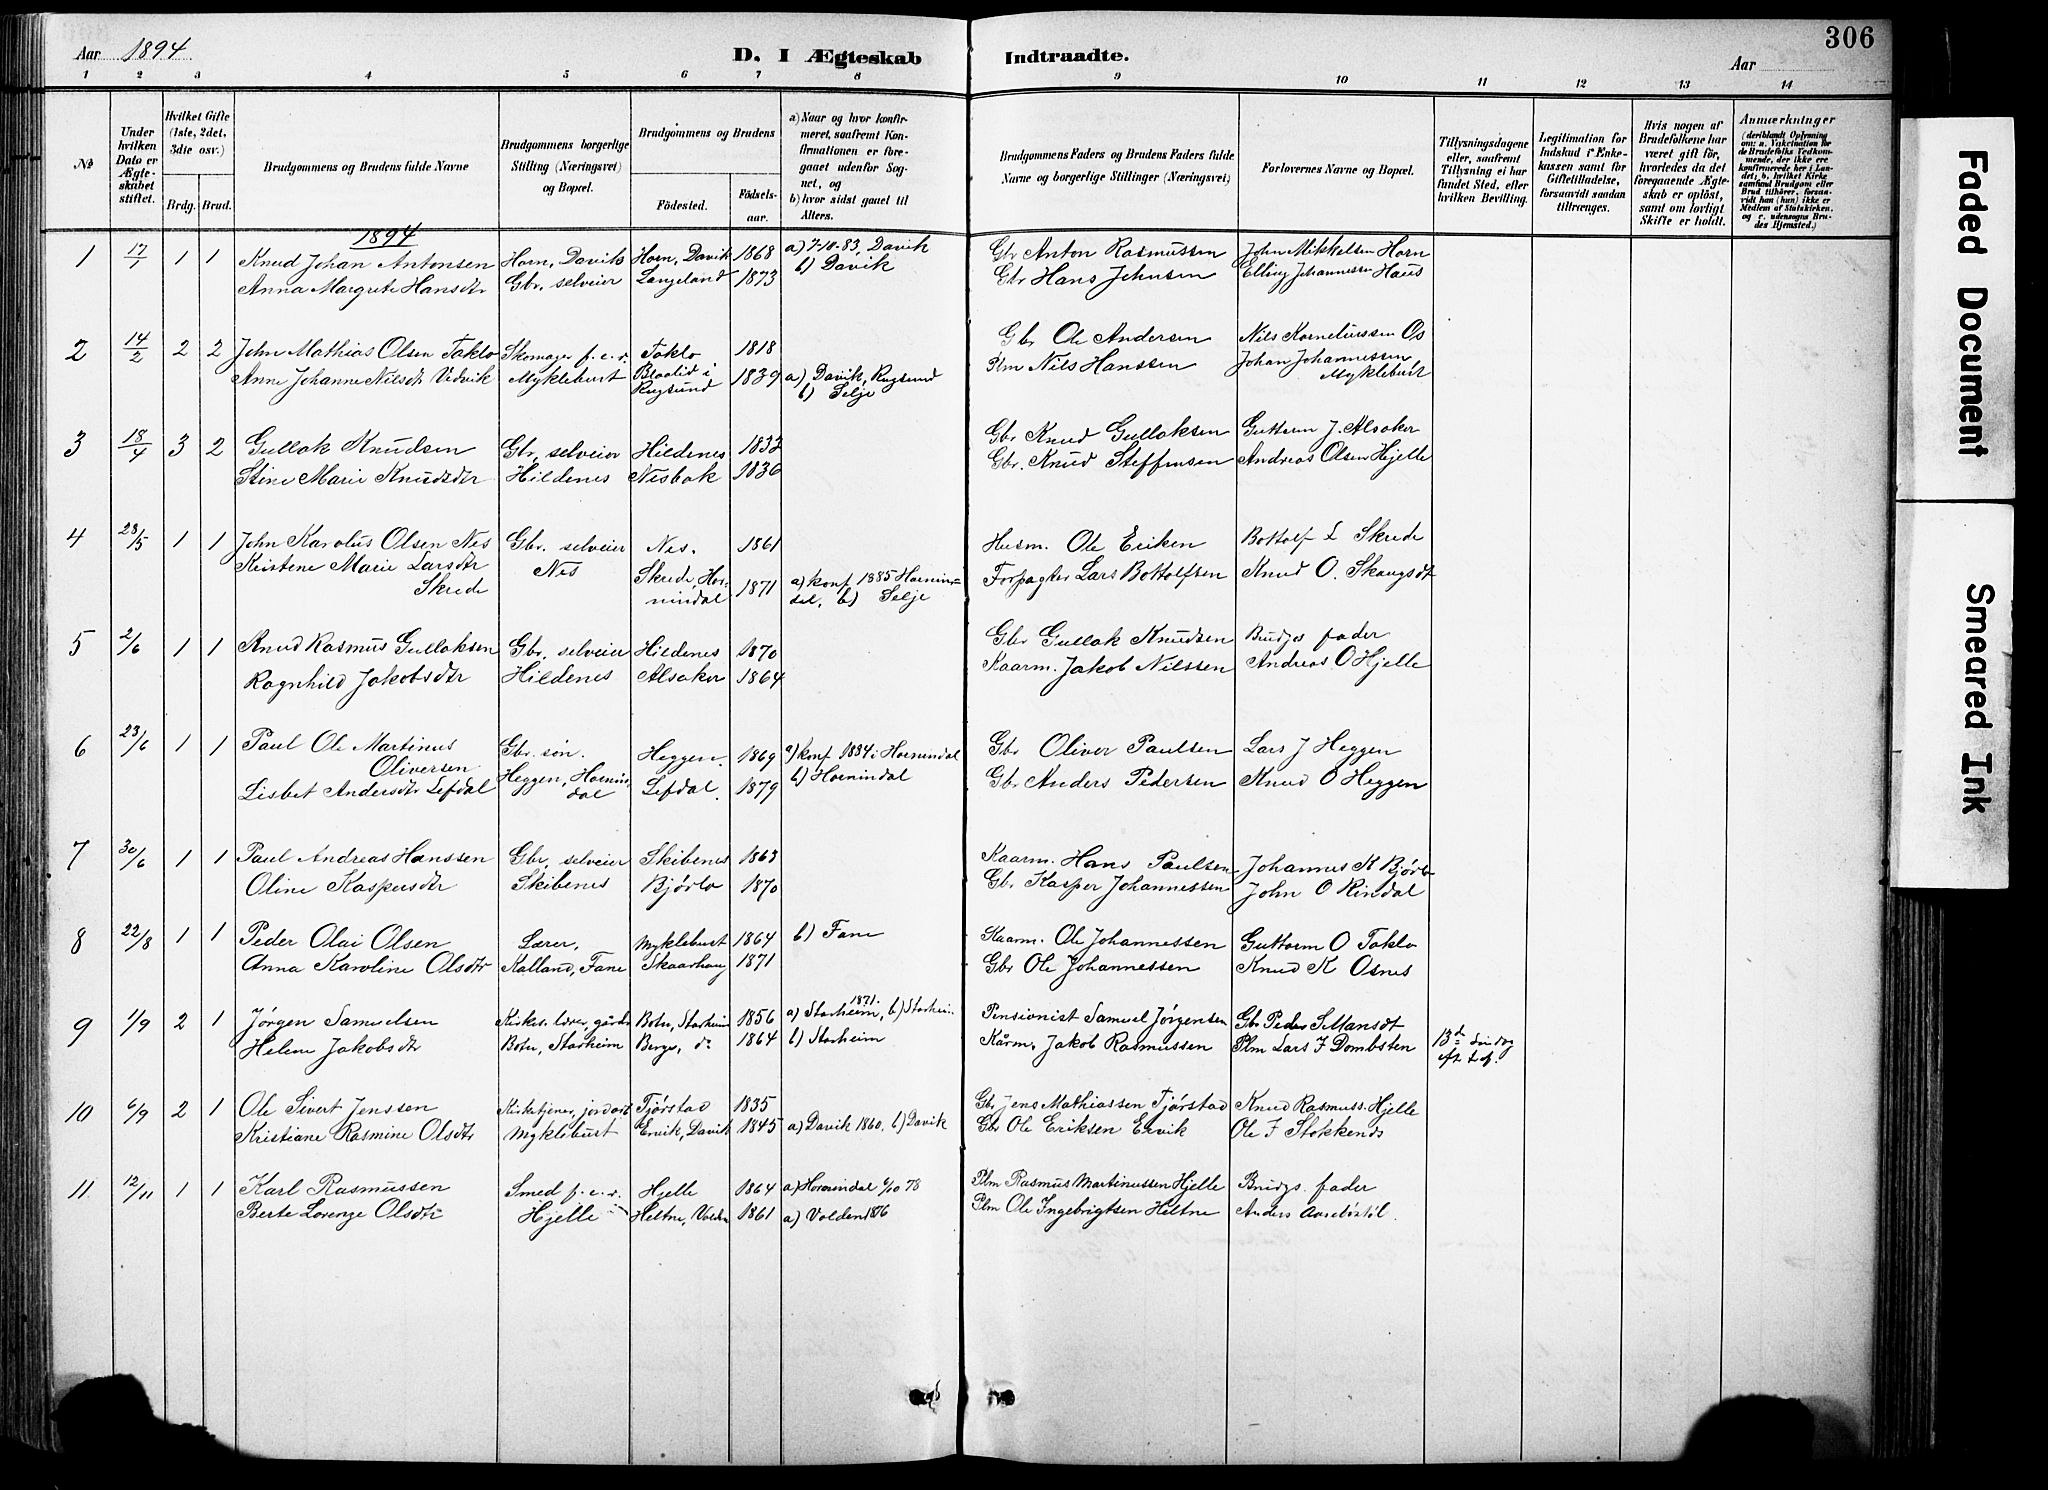 Aar 1894
D. I Ægteskab Indtraadte.
Aar
306
1 2 3 4 5 6 7 8 9 10 11 12 13 14
No
Under hvilken Dato er Ægteskabet stiftet.
Hvilket Gifte (1ste, 2det, 3die osv.)
Brdg. Brud.
Brudgommens og Brudens fulde Navne
Brudgommens borgerlige Stilling (Næringsvei) og Bopæl.
Brudgommens og Brudens
Fødested.
Fødselsaar.
a) Naar og hvor konfirmeret, saafremt Konfirmationen er foregaaet udenfor Sognet, og
b) hvor sidst gaaet til Alters.
Brudgommens Faders og Brudens Faders fulde Navne og borgerlige Stillinger (Næringsvei)
Forlovernes Navne og Bopæl.
Tillysningsdagene eller, saafremt Tillysning ei har fundet Sted, efter hvilken Bevilling.
Legitimation for Indskud i Enkekassen samt for Giftetilladelse, forsaavidt saadan tiltrænges.
Hvis nogen af Brudefolkene har været gift før, hvorledes da det foregaaende Ægteskab er opløst, samt om lovligt Skifte er holdt.
Anmærkninger
(deriblandt Oplysning om: a. Vakcination for de Brudefolks Vedkommende, der ikke ere konfirmerede her i Landet; b. hvilket Kirkesamfund Brudgom eller Brud tilhører, forsaavidt han (hun) ikke er Medlem af Statskirken, og c. udensogns Brudes Hjemsted.)
1894
1 17/1 1 1 Knud Johan Antonsen Horn, Daviks Horn, Davik 1868 a) 7-10-83, Davik Gbr Anton Rasmussen John Mikkelsen Horn
Anna Margrete Hansdtr Gbr. selveier Langeland 1873 b) Davik Gbr Hans Johnsen Elling Johannessen Haus
2 14/2 2 2 John Mathias Olsen Taklo Skomager f.e.r. Taklo 1818 Gbr Ole Andersen Nils Korneliussen Os
Anne Johanne Nilsdtr Vedvik Myklebust Blaalid i Rugsund 1839 a) Davik, Rugsund b) Selje Plm Nils Hanssen Johan Johannessen Myklebust
3 18/4 3 2 Gullak Knudsen Gbr. selveier Hildenes 1832 Gbr Knud Gullaksen Guttorm J. Alsaker
Stine Marie Knudsdtr Hildenes Nesbak 1836 Gbr. Knud Steffensen Andreas Olsen Hjelle
4 28/5 1 1 John Karolus Olsen Nes Gbr. selveier Nes. 1861 Husm. Ole Eriken Bottolf L Skrede
Kristene Marie Larsdtr Skrede Nes Skrede, Hornindal 1871 a) konf 1885 Hornindal, b) Selje Forpagter Lars Bottolfsen Knud O. Skaugsdt
5 2/6 1 1 Knud Rasmus Gullaksen Gbr. selveier Hildenes 1870 Gbr Gullak Knudsen Brudgs fader
Ragnhild Jakobsdtr Hildenes Alsaker 1864 Kaarm. Jakob Nilssen Andreas O Hjelle
6 23/6 1 1 Paul Ole Martinus Oliversen Gbr. søn. Heggen. 1869 a) konf 1884 i Hornindal Gbr Oliver Paulsen Lars J Heggen
Lisbet Andersdtr Lefdal Heggen, Hornindal Lefdal. 1879 b) Hornindal Gbr Anders Pedersen Knud O Heggen
7 30/6 1 1 Paul Andreas Hanssen Gbr. selveier Skibenes 1863 Kaarm. Hans Paulsen Johannes K Bjørlo
Oline Kaspersdtr Skibenes Bjørlo 1870 Gbr Kasper Johannessen John O Rindal
8 22/8 1 1 Peder Olai Olsen Lærer, Myklebust 1864 b) Fane Kaarm. Ole Johannessen Guttorm O Taklo
Anna Karoline Olsdtr Kalland, Fane Skaarhaug 1871 Gbr Ole Johannessen Knud K Osnes
9 1/9 2 1 Jørgen Samuelsen Kirkes. lærer, gårdbr Botn, Starheim 1856 a) Starheim 1871. b) Starheim Pensionist Samuel Jørgensen Gbr Peder S Mansdt
Helene Jakobsdtr Botn, Starheim Berge, do 1864 b) Starheim Kårm. Jakob Rasmussen Plm Lars J Dombsten 13de søndag eft. tref.
10 6/9 2 1 Ole Sivert Jenssen Kirketjener, jordarb Tjørstad 1835 Gbr Jens Mathiassen Tjørstad Knud Rasmuss. Hjelle
Kristiane Rasmine Olsdtr Myklebust Ervik, Davik 1845 a) Davik 1860. b) Davik Gbr Ole Eriksen Ervik Ole J Stokkends
11 12/11 1 1 Karl Rasmussen Smed f.e.r. Hjelle 1864 a) Hornindal 6/10 78 Plm Rasmus Martinussen Hjelle Brudgs. fader
Berte Lorenze Olsdtr Hjelle Heltne, Volden 1861 a) Volden 1876 Plm Ole Ingebrigtsen Heltne Anders Aarsebøstøl.
Faded Document
Smeared Ink